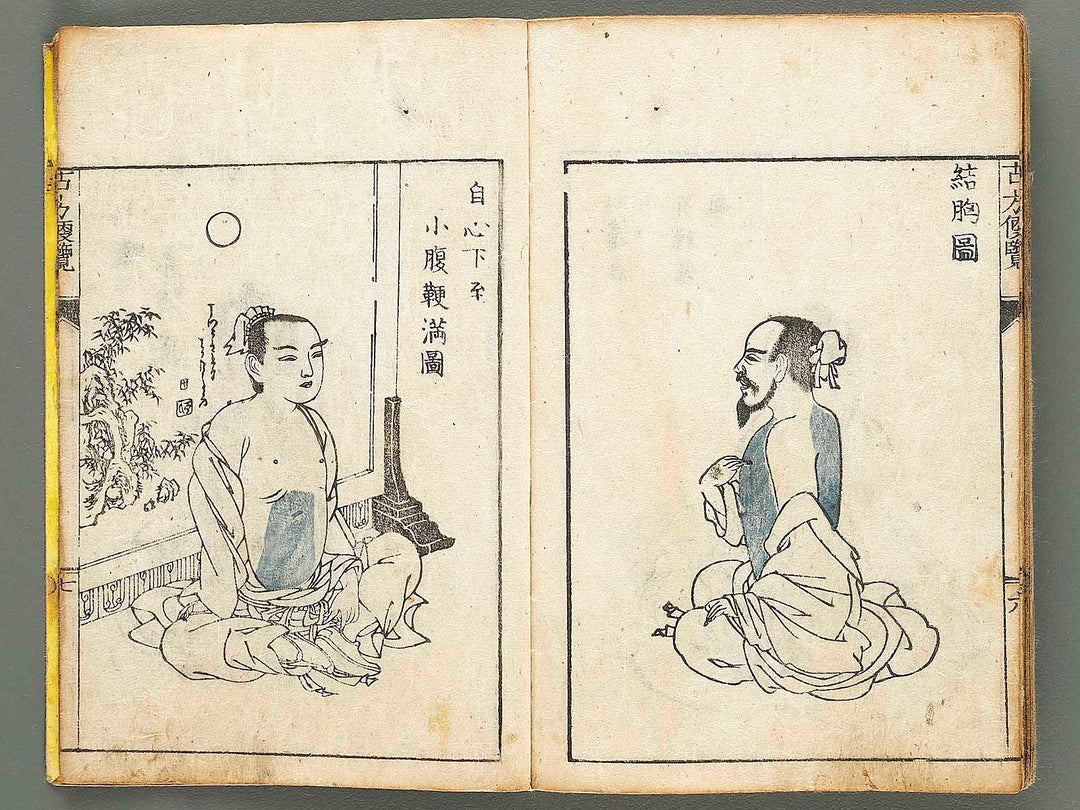 古方便覽
結胸圖
六
自心下至
小腹鞕滿圖
古方便覽
七